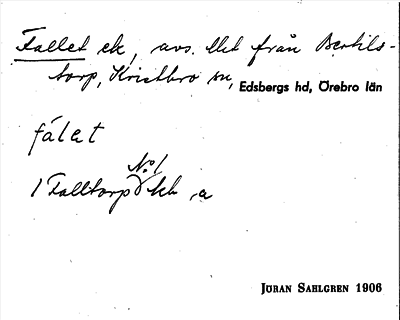 Fallet ek, avs. Met från Bertils-
torp, Kristbro sn, Edsbergs hd, Örebro län
fálet
No 1
1 Falltorp kk, a
JÖRAN SAHLGREN 1906